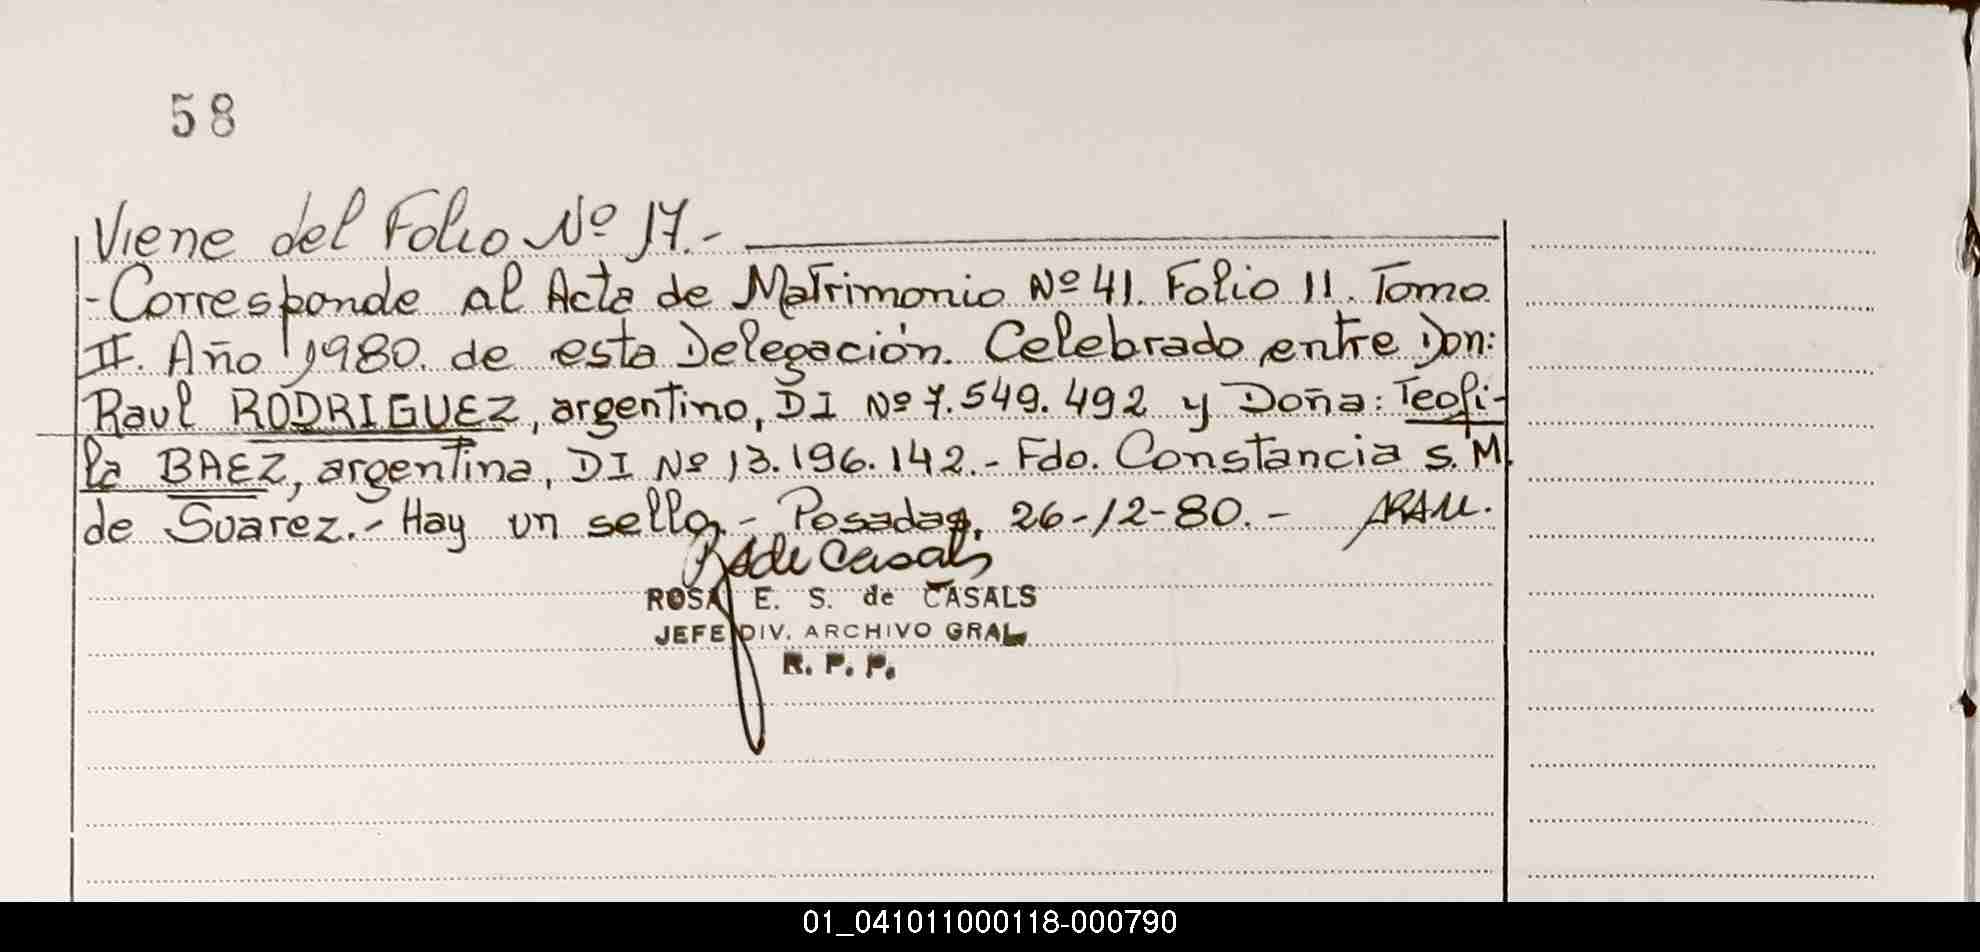 58
Viene del Folio Nº 17.-
- Corresponde al Acta de Matrimonio Nº 41. Folio 11. Tomo
II. Año 1980. de esta Delegación. Celebrado entre Don:
Raul RODRIGUEZ, argentino, DI Nº 7.549.492 y Doña: Teofi-
la BAEZ, argentina, DI Nº 13.196.142.- Fdo. Constancia S. M.
de Suarez.- Hay un sello.- Posadas, 26-12-80.-
de Casals
ROSA E. S. de CASALS
JEFE DIV. ARCHIVO GRAL
R. P. P.
01_041011000118-000790